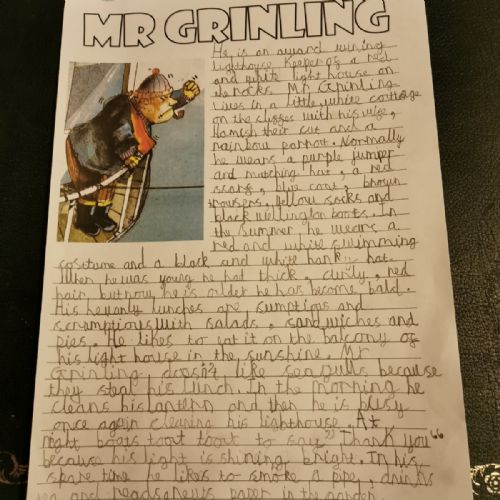 MR GRINLING
He is an award wining
lighthouse keeper of a red
and white light house on
the rocks. Mr Grinling
lives in a little white cottage
on the cliffs with his wife,
Hamish their cat and a
rainbow parrot. Normally
he wears a purple jumper
and matching hat, a red
scarf, blue coat, brown
trousers, yellow socks and
black wellington boots. In
the summer he wears a
red and white swimming
costume and a black and white hat.
When he was young he had thick, curly, red
hair but now he is older he has become bald.
His heavanly lunches are sumptios and
scrumptious with salads, sandwiches and
pies. He likes to eat it on the balcony of
his light house in the sunshine. Mr
Grinling doesn't like seagulls because
they steal his lunch. In the morning he
cleans his lantern and then he is busy
once again cleaning his lighthouse. At
night boats toot toot to say "Thank you"
because his light is shining bright. In his
spare time he likes to smoke a pipe, drinks
tea and reads paper in the garden.